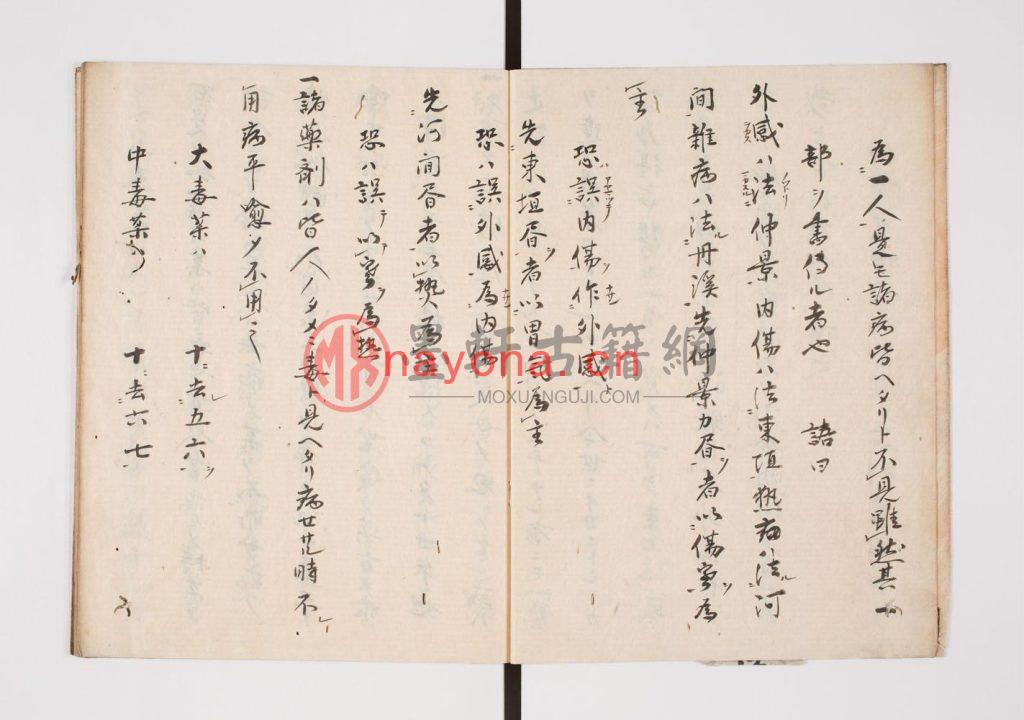 為一人邊モ諸病皆ヘタリト不見雖然其一
部ツ書傳ル者也　語曰
外感ハ法仲景内傷ハ法東垣熱病ハ法ル河
間雜病ハ法ル丹溪先仲景カ者以傷寒ツ為
主
恐誤内傷ツ作外感
先東垣者ツ以胃為主
恐ハ誤外感為内傷
先河間者以熱為主
恐ハ誤テ以寒ツ為熱
一諸薬剤ハ皆人ノタメニ毒ト見ヘタリ病時不レ
用病平癒タ不用之
大毒薬ハ　十ニ去五六ツ
中毒薬ハ　十ニ去六七
墨軒古籍網
nayona.cn
MOXUANGUJI.COM